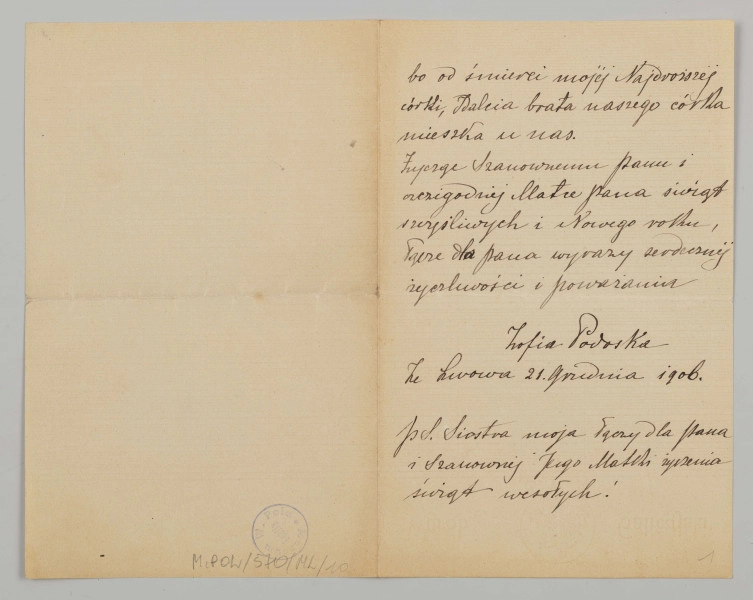 bo od śmierci mojéj Najdroższéj
córki, Idalcia brata naszego córka
mieszka u nas.
Życzę Szanownemu Panu i
czcigodnéj Matce Pana świąt
szczęśliwych i Nowego roku,
łączę dla Pana wyrazy serdecznéj
życzliwości i poważania
Zofia Podoska
Ze Lwowa 21. Grudnia 1906.
p S. Siostra moja łączy dla Pana
i Szanownéj Jego Matki życzenia
świąt wesołych!
M.POW/570/ML/
1